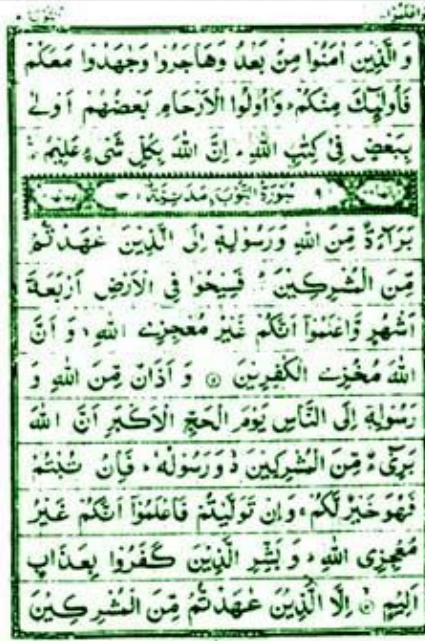 واعلموا
التوبة ٩
وَالَّذِيْنَ اٰمَنُوْا مِنْۢ بَعْدُ وَهَاجَرُوْا وَجٰهَدُوْا مَعَكُمْ
فَاُولٰٓئِكَ مِنْكُمْ ؕ وَاُولُوا الْاَرْحَامِ بَعْضُهُمْ اَوْلٰى
بِبَعْضٍ فِىْ كِتٰبِ اللّٰهِ ؕ اِنَّ اللّٰهَ بِكُلِّ شَىْءٍ عَلِيْمٌ
٩ سُوْرَةُ التَّوْبَةِ مَدَنِيَّةٌ
بَرَآءَةٌ مِّنَ اللّٰهِ وَرَسُوْلِهٖۤ اِلَى الَّذِيْنَ عٰهَدْتُّمْ
مِّنَ الْمُشْرِكِيْنَ ؕ فَسِيْحُوْا فِى الْاَرْضِ اَرْبَعَةَ
اَشْهُرٍ وَّاعْلَمُوْۤا اَنَّكُمْ غَيْرُ مُعْجِزِى اللّٰهِ ۙ وَ اَنَّ
اللّٰهَ مُخْزِى الْكٰفِرِيْنَ ۞ وَ اَذَانٌ مِّنَ اللّٰهِ وَ
رَسُوْلِهٖۤ اِلَى النَّاسِ يَوْمَ الْحَجِّ الْاَكْبَرِ اَنَّ اللّٰهَ
بَرِىْٓءٌ مِّنَ الْمُشْرِكِيْنَ ۙ وَرَسُوْلُهٗ ؕ فَاِنْ تُبْتُمْ
فَهُوَ خَيْرٌ لَّكُمْ ۚ وَاِنْ تَوَلَّيْتُمْ فَاعْلَمُوْۤا اَنَّكُمْ غَيْرُ
مُعْجِزِى اللّٰهِ ؕ وَ بَشِّرِ الَّذِيْنَ كَفَرُوْا بِعَذَابٍ
اَلِيْمٍ ۞ اِلَّا الَّذِيْنَ عٰهَدْتُّمْ مِّنَ الْمُشْرِكِيْنَ